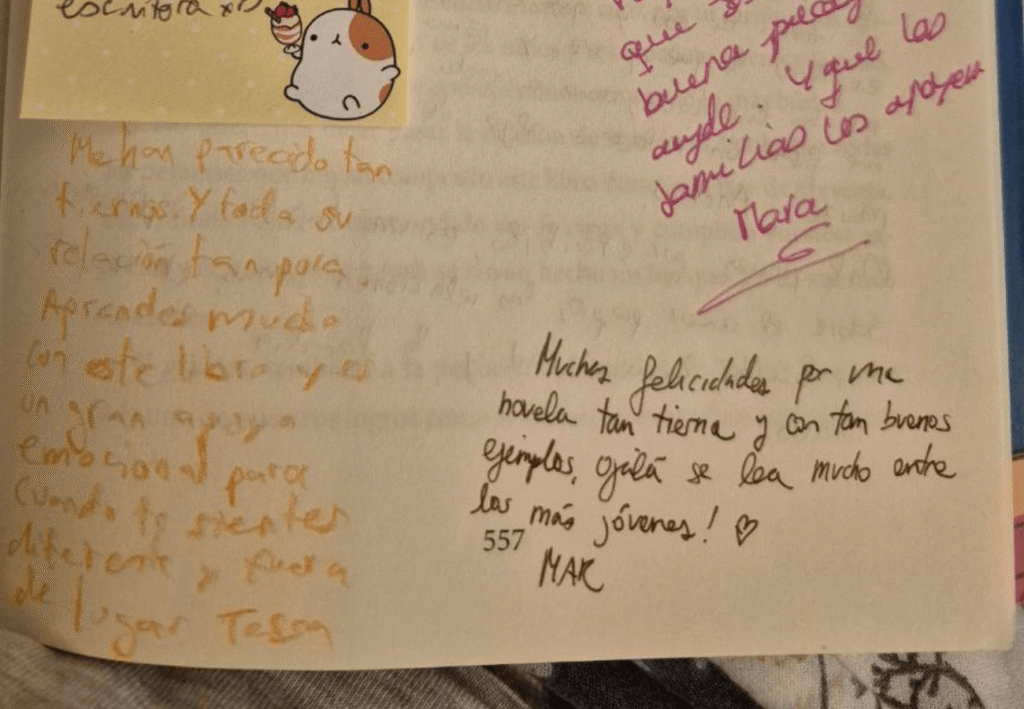 escritora xD
que
buena
ayude y que las
familias los apoyen
Mara
Me han parecido tan
tiernos y toda su
relación tan pura
Aprendes mucho
con este libro y es
un gran apoyo
emocional para
cuando te sientes
diferente y fuera
de lugar Tessa
Muchas felicidades por una
novela tan tierna y con tan buenos
ejemplos, ojalá se lea mucho entre
los más jóvenes! ♡
557
MAR